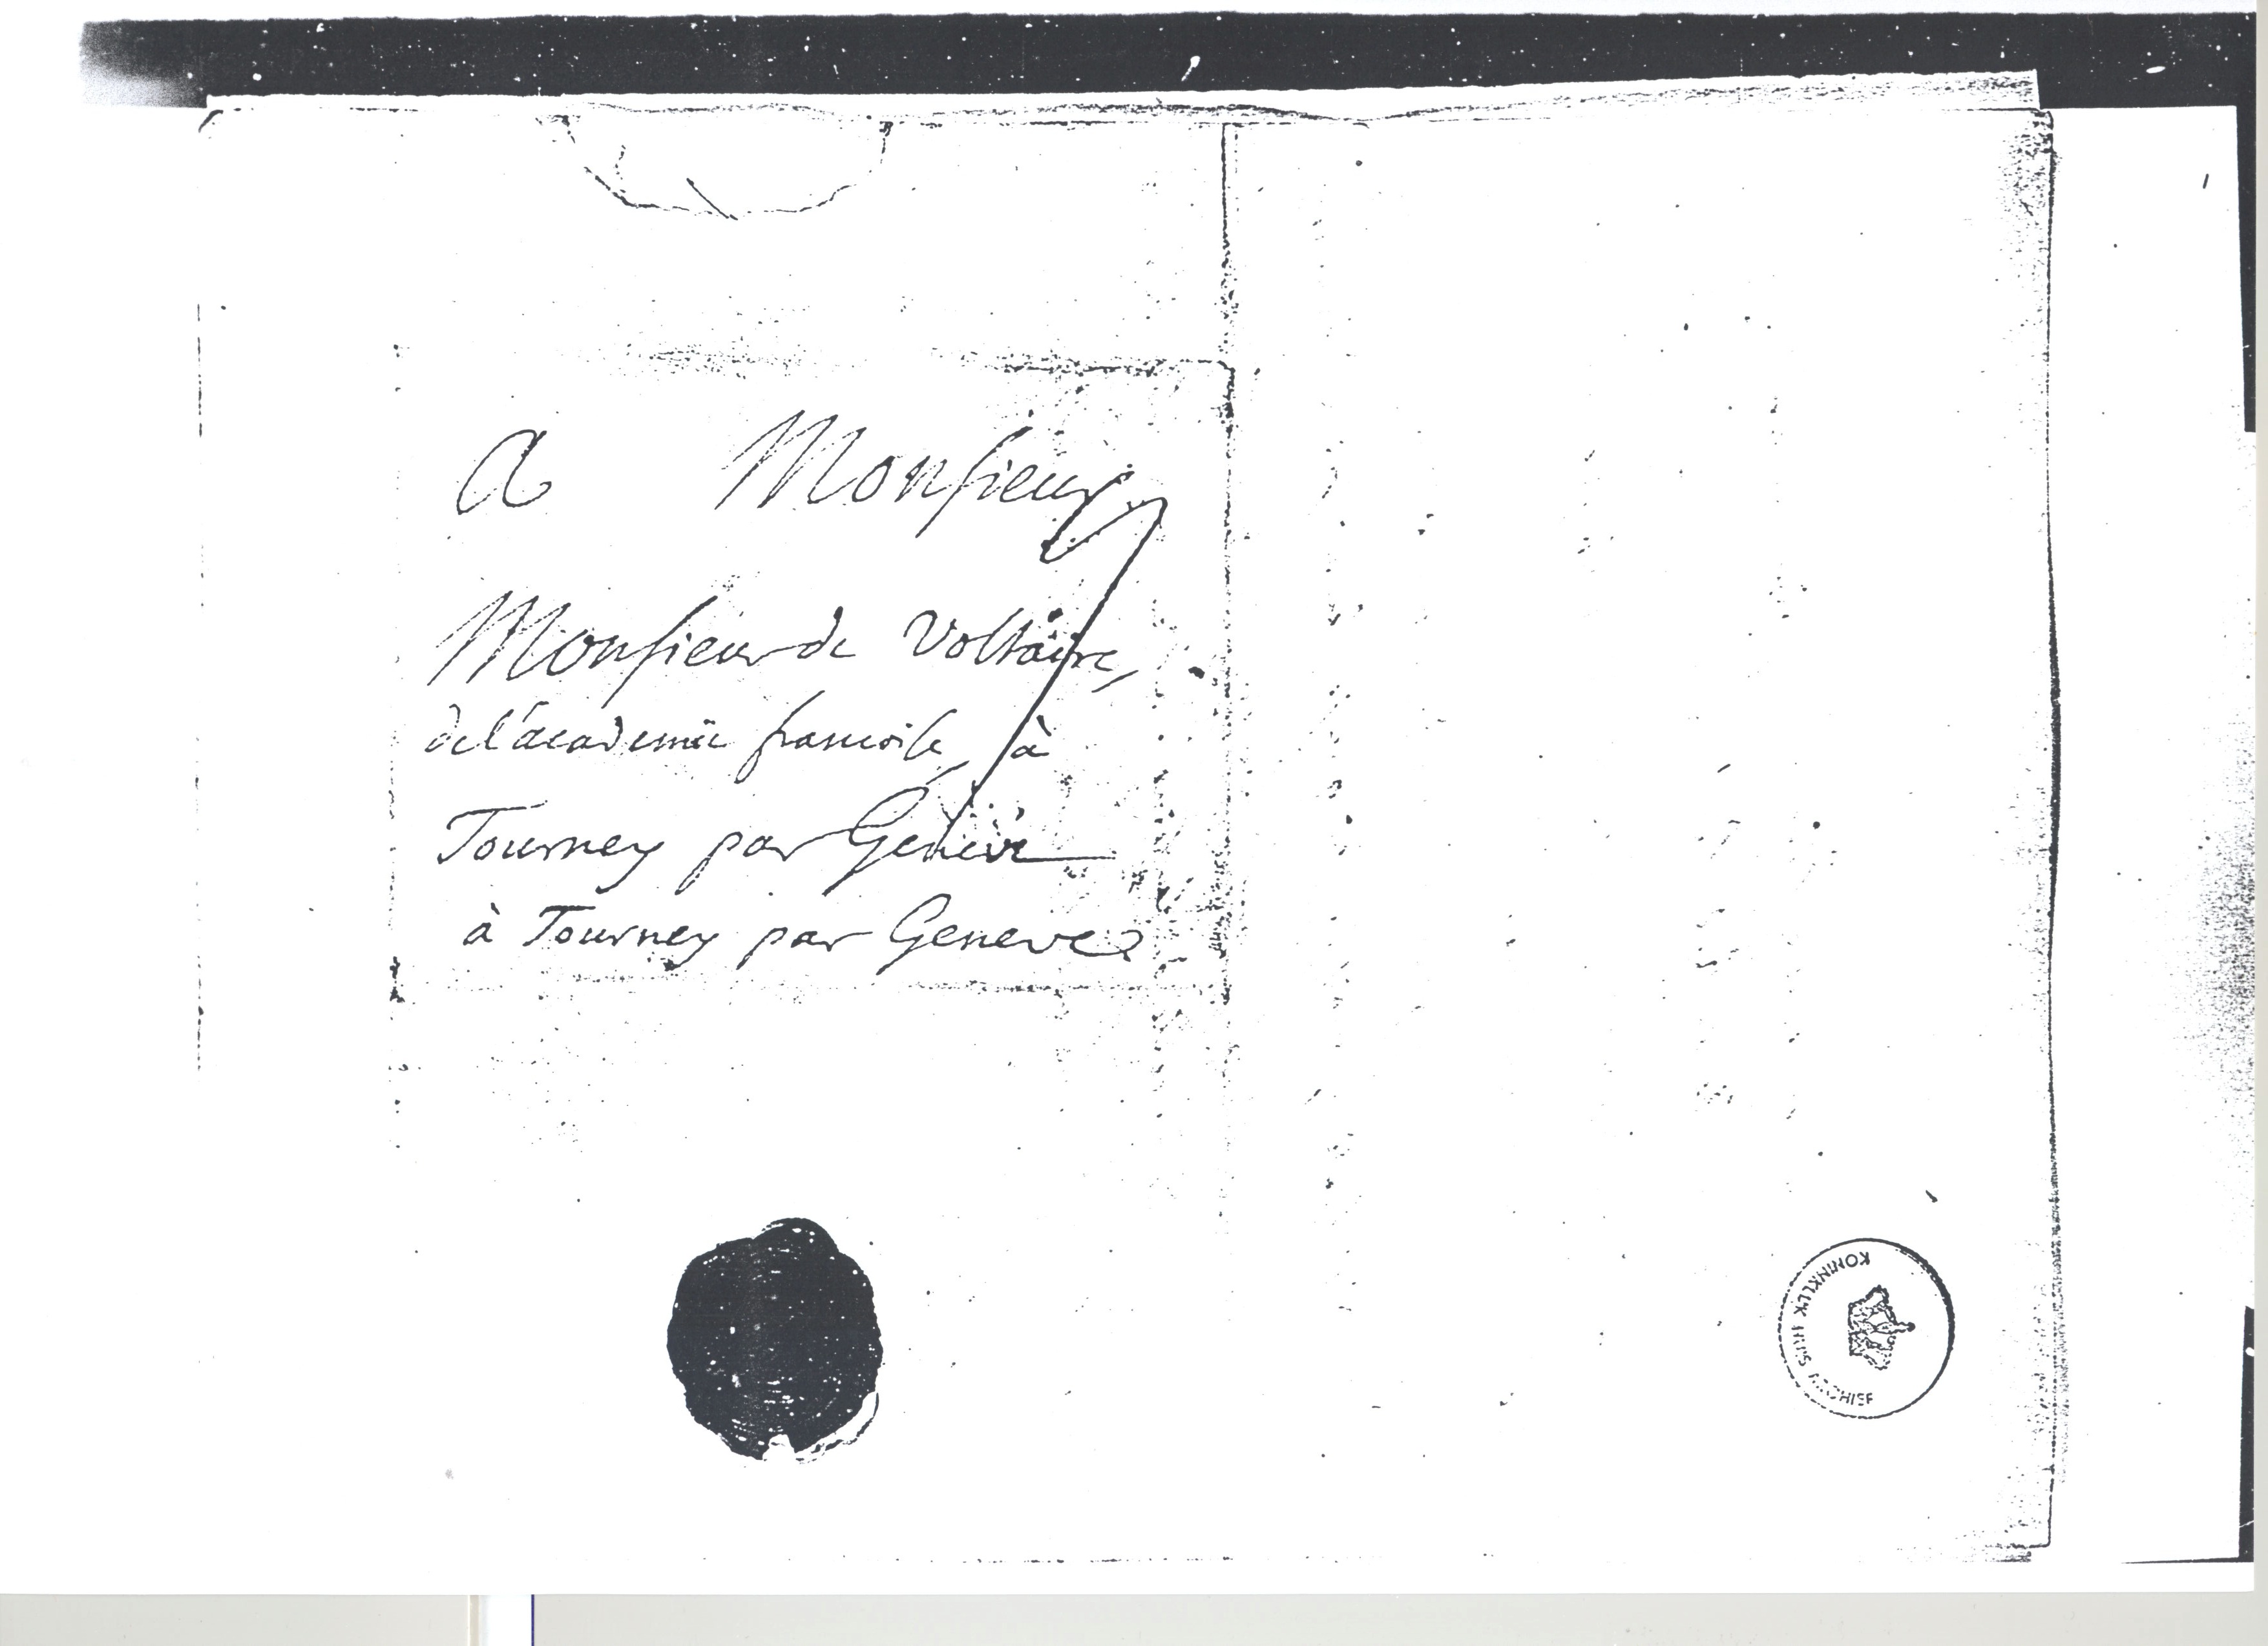 A Monsieur
Monsieur de Voltaire,
de l'academie francoise, à
Tourney par Genève
à Tourney par Geneve
KONINKLIJK HUIS ARCHIEF